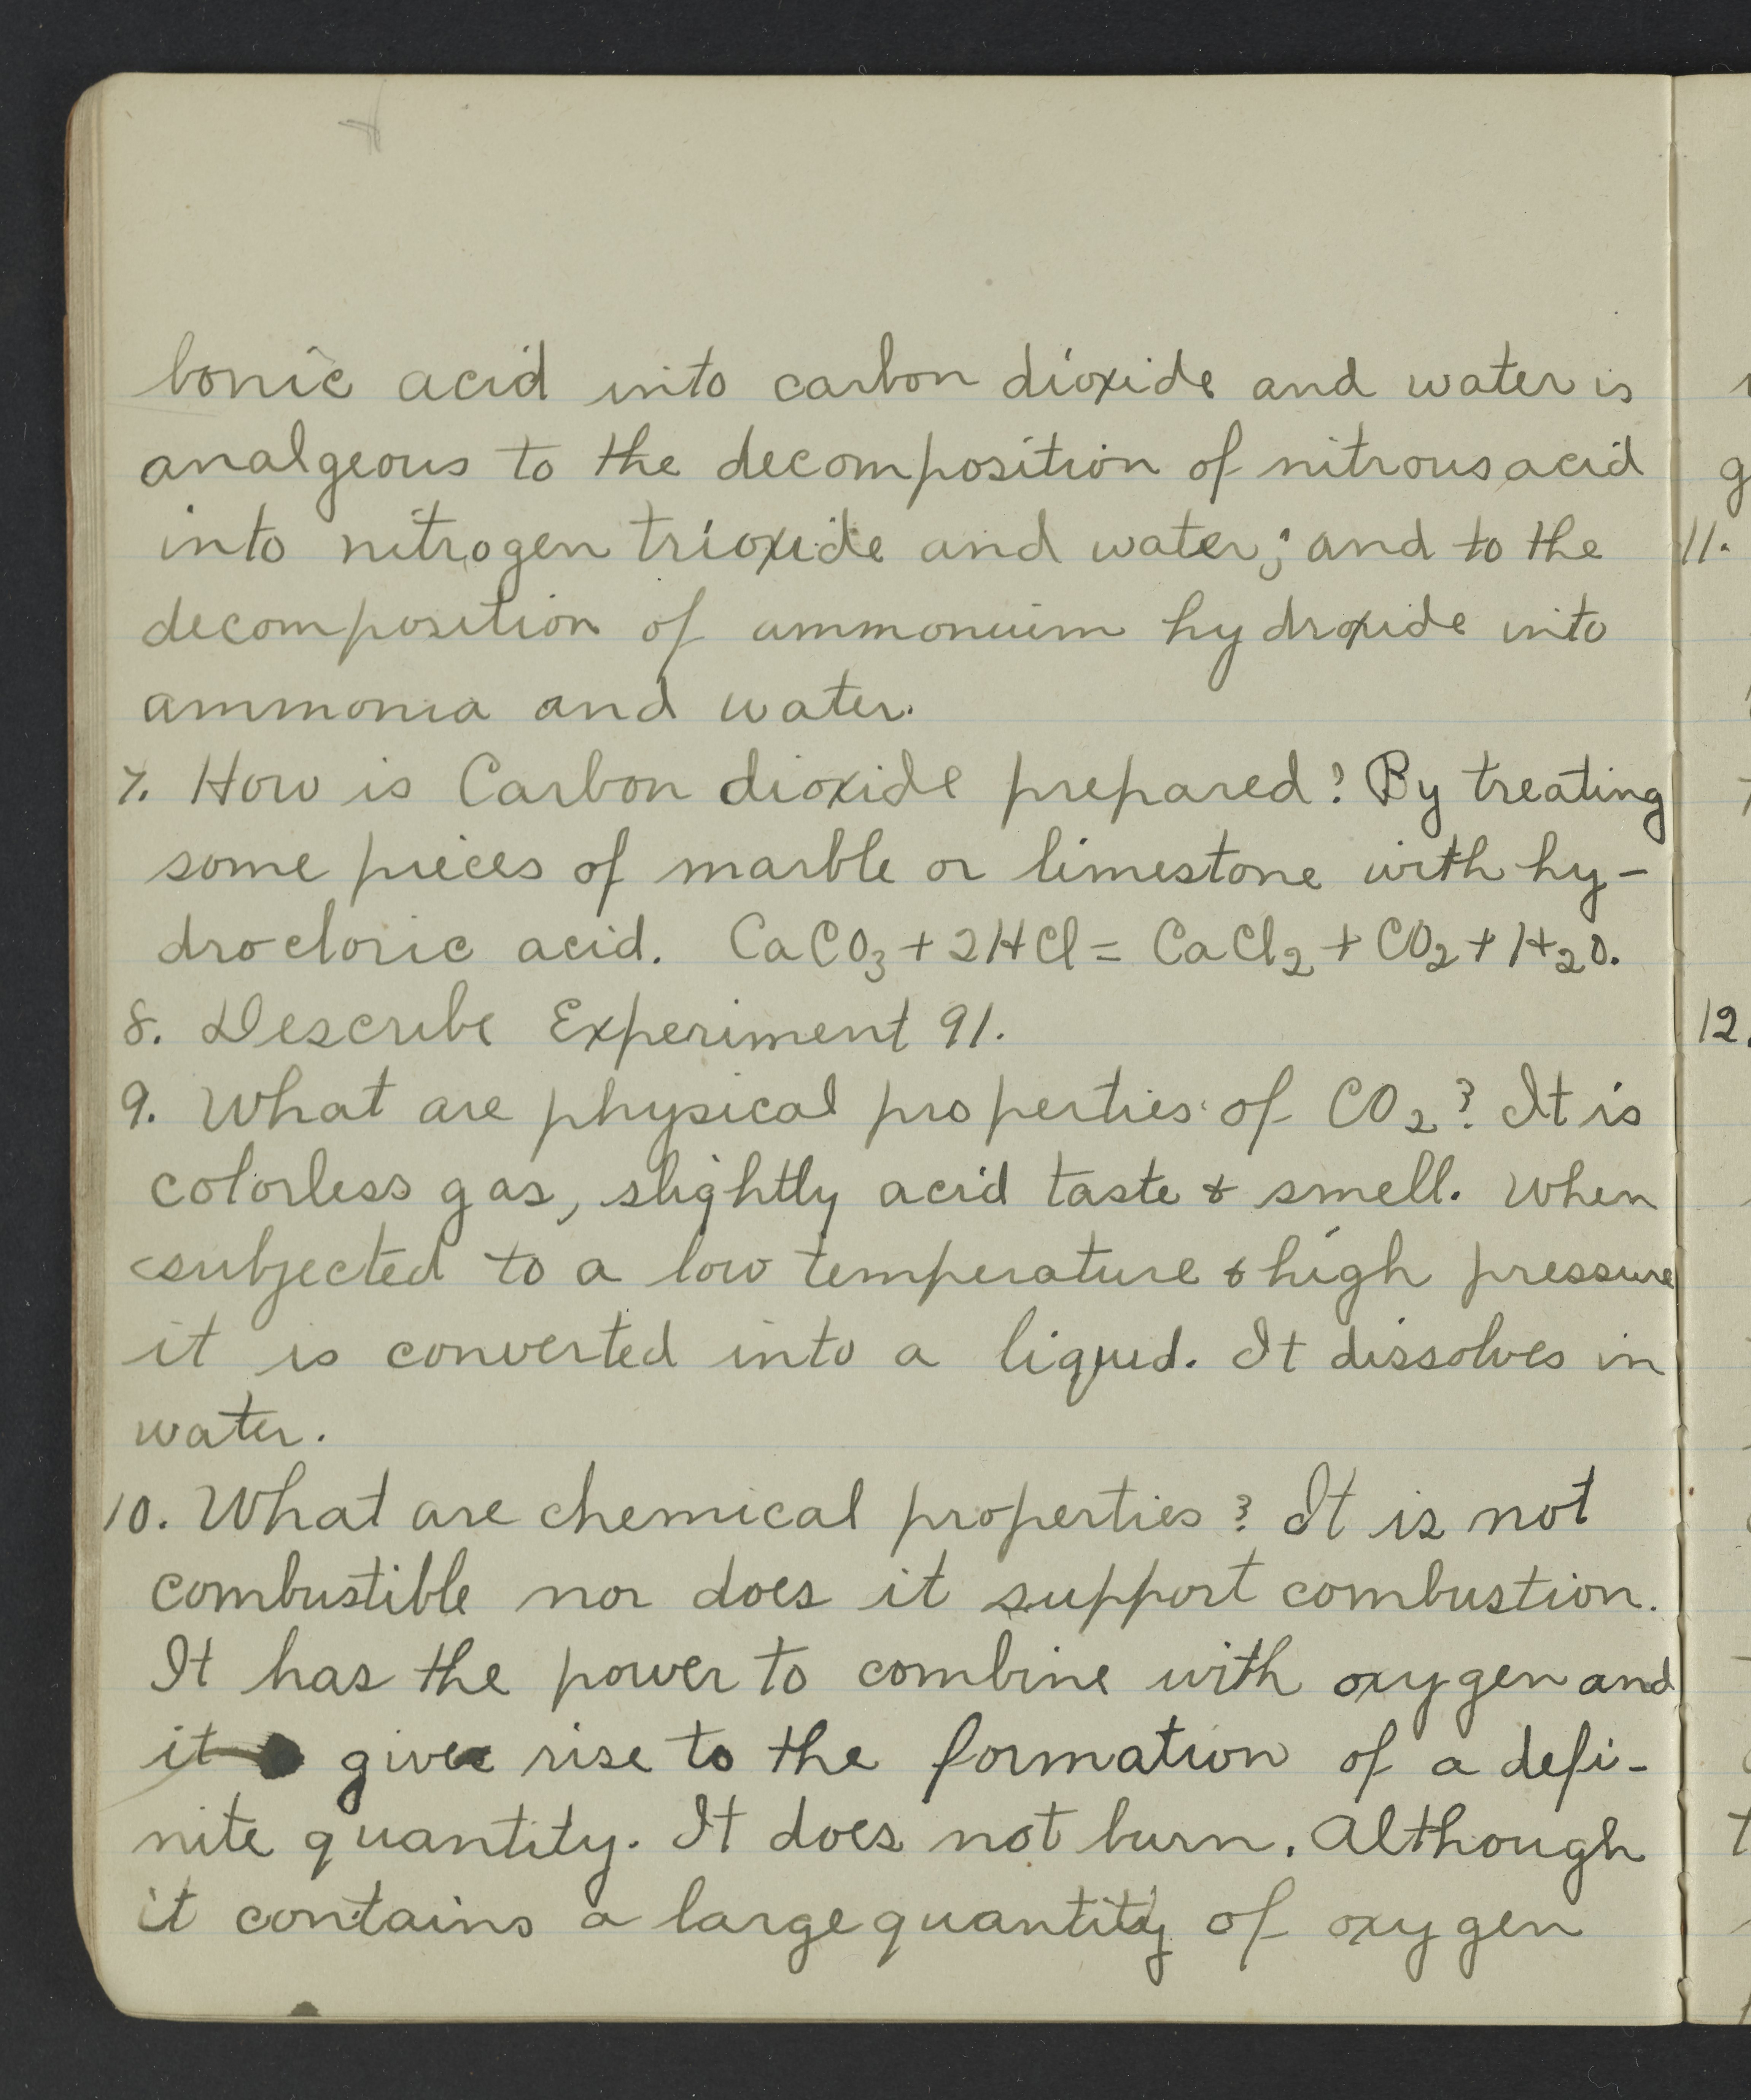 bonic acid into carbon dioxide and water is
analgeous to the decomposition of nitrous acid
into nitrogen trioxide and water; and to the
decomposition of ammonium hydroxide into
ammonia and water.
7. How is Carbon dioxide prepared? By treating
some pieces of marble or limestone with hy-
drocloric acid. CaCO₃ + 2HCl = CaCl₂ + CO₂ + H₂O.
8. Describe Experiment 91.
9. What are physical properties of CO₂? It is
colorless gas, slightly acid taste & smell. When
subjected to a low temperature & high pressure
it is converted into a liquid. It dissolves in
water.
10. What are chemical properties? It is not
combustible nor does it support combustion.
It has the power to combine with oxygen and
it gives rise to the formation of a defi-
nite quantity. It does not burn. Although
it contains a large quantity of oxygen
g
11.
12.